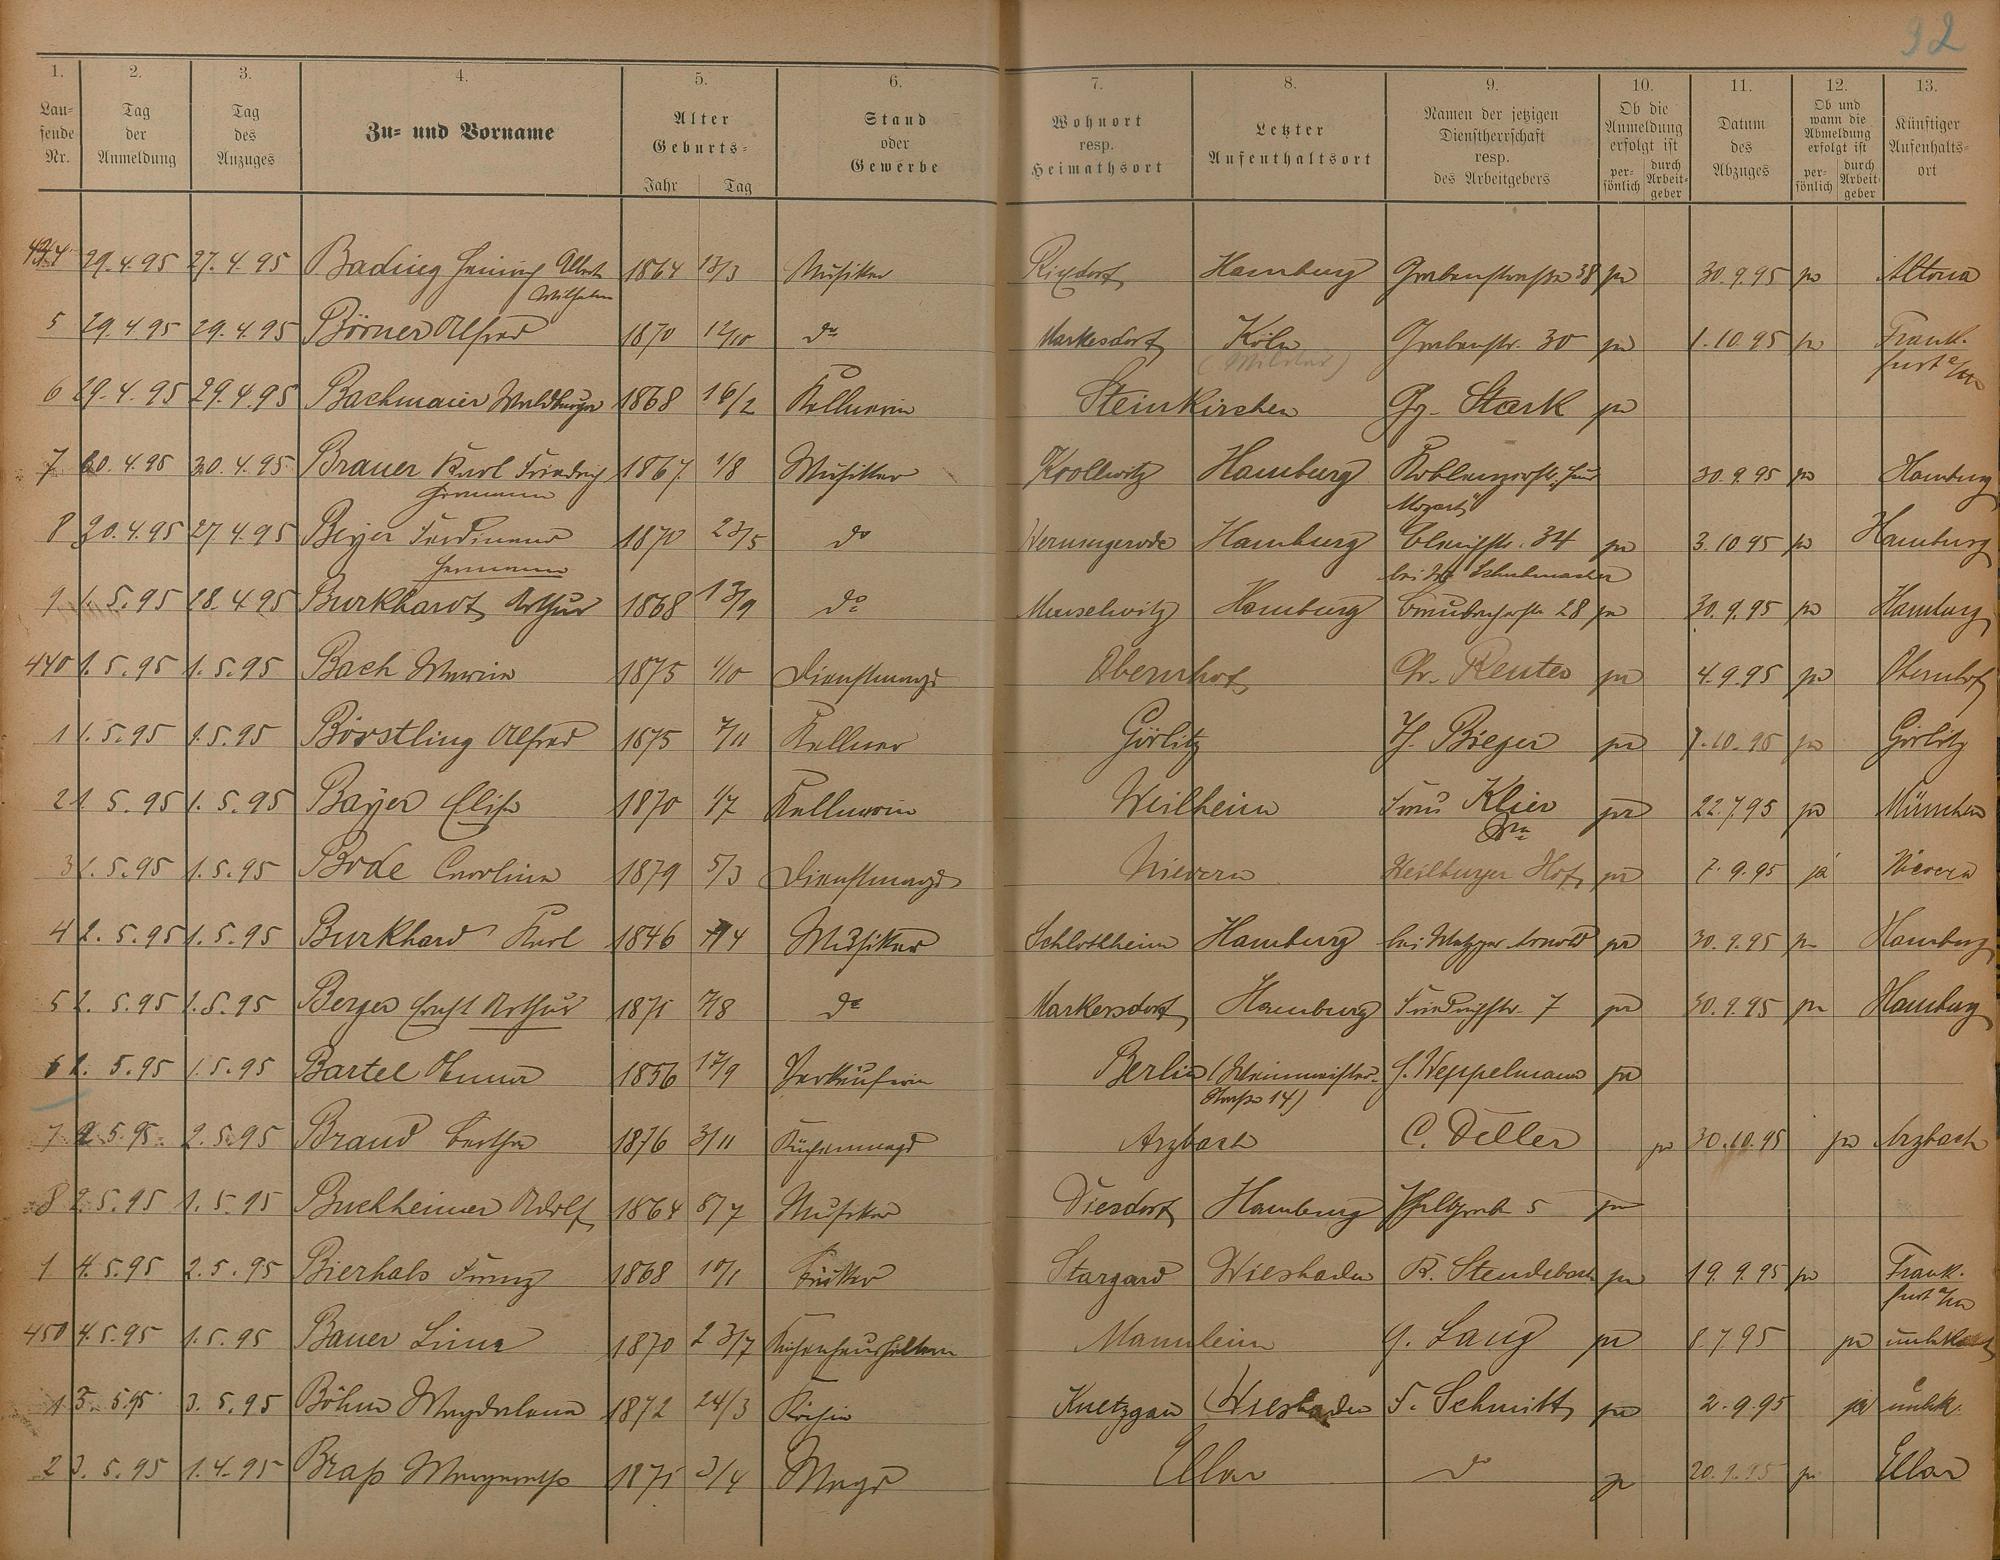 32
1. 2. 3. 4. 5. 6. 7. 8. 9. 10. 11. 12. 13.
Laufende Nr. Tag der Anmeldung Tag des Anzuges Zu- und Vorname Alter Geburts- Jahr Tag Stand oder Gewerbe Wohnort resp. Heimathsort Letzter Aufenthaltsort Namen der jetzigen Dienstherrschaft resp. des Arbeitgebers Ob die Anmeldung erfolgt ist persönlich durch Arbeitgeber Datum des Abzuges Ob und wann die Abmeldung erfolgt ist persönlich durch Arbeitgeber Künftiger Aufenthaltsort
29.4.95 27.4.95 Bading Albert 1864 13/3 Musiker Rixdorf Hamburg Grabenstrasse 38 30.9.95 Altona
Wilhelm
5 29.4.95 29.4.95 Börner Alfred 1870 12/10 do Markesdorf Köln Grabenstr. 30 1.10.95 Frank-
(Militär) furt a/m
6 29.4.95 29.4.95 Bachmaier Waldburga 1868 16/2 Kellnerin Steinkirchen Gg. Stark
7 30.4.95 Brauer Karl Friedrich 1867 1/8 Musiker Hamburg 30.9.95 Hamburg
Hermann Mozart
8 30.4.95 27.4.95 Beyer Ferdinand 1870 23/5 do Hamburg 34 3.10.95 Hamburg
Hermann bei Schuhmacher
9 1.5.95 28.4.95 Burkhardt Arthur 1868 13/9 do Meuselwitz Hamburg 28 30.9.95 Hamburg
440 1.5.95 1.5.95 Bach Maria 1875 1/10 Dienstmagd Obernhof Reuter 4.9.95 Obernhof
1 1.5.95 1.5.95 Börstling Alfred 1875 7/11 Kellner Görlitz Bieger 7.10.95 Görlitz
2 1.5.95 1.5.95 Bayer Elise 1870 1/7 Kellnerin Weilheim Frau Klier 22.7.95 München
3 1.5.95 1.5.95 Bode Carolina 1879 5/3 Dienstmagd Nievern Weilburger Hof 7.9.95 ja Nievern
4 2.5.95 1.5.95 Burkhard Karl 1846 Musiker Schlotheim Hamburg bei Metzger Arnold 30.9.95 Hamburg
5 2.5.95 1.5.95 Berger Ernst Arthur 1871 7/8 do Markersdorf Hamburg Friedrichstr. 7 30.9.95 Hamburg
6 2.5.95 1.5.95 Bartel Anna 1856 17/9 Verkäuferin Berlin (Weinmeister- Weppelmann
Strasse 14)
7 2.5.95 2.5.95 Brand Bertha 1876 3/11 Küchenmagd Arzbach C. Deller 30.10.95 Arzbach
8 2.5.95 1.5.95 Buchheimer Adolf 1864 8/7 Musiker Diesdorf Hamburg 5
1 4.5.95 2.5.95 Bierhals Franz 1868 10/1 Stargard Wiesbaden R. Stendebach 19.9.95 Frank-
furt a/m
450 4.5.95 1.5.95 Bauer Lina 1870 23/7 Küchenhaushälterin Mannheim Lang 8.7.95 unbekannt
1 3.5.95 3.5.95 Böhm Magdalena 1872 24/3 Köchin Knetzgau Wiesbaden F. Schmitt 2.9.95 ja unbek.
2 3.5.95 1.4.95 Braß Margarethe 1875 3/4 Magd Ellar do 20.9.95 Ellar